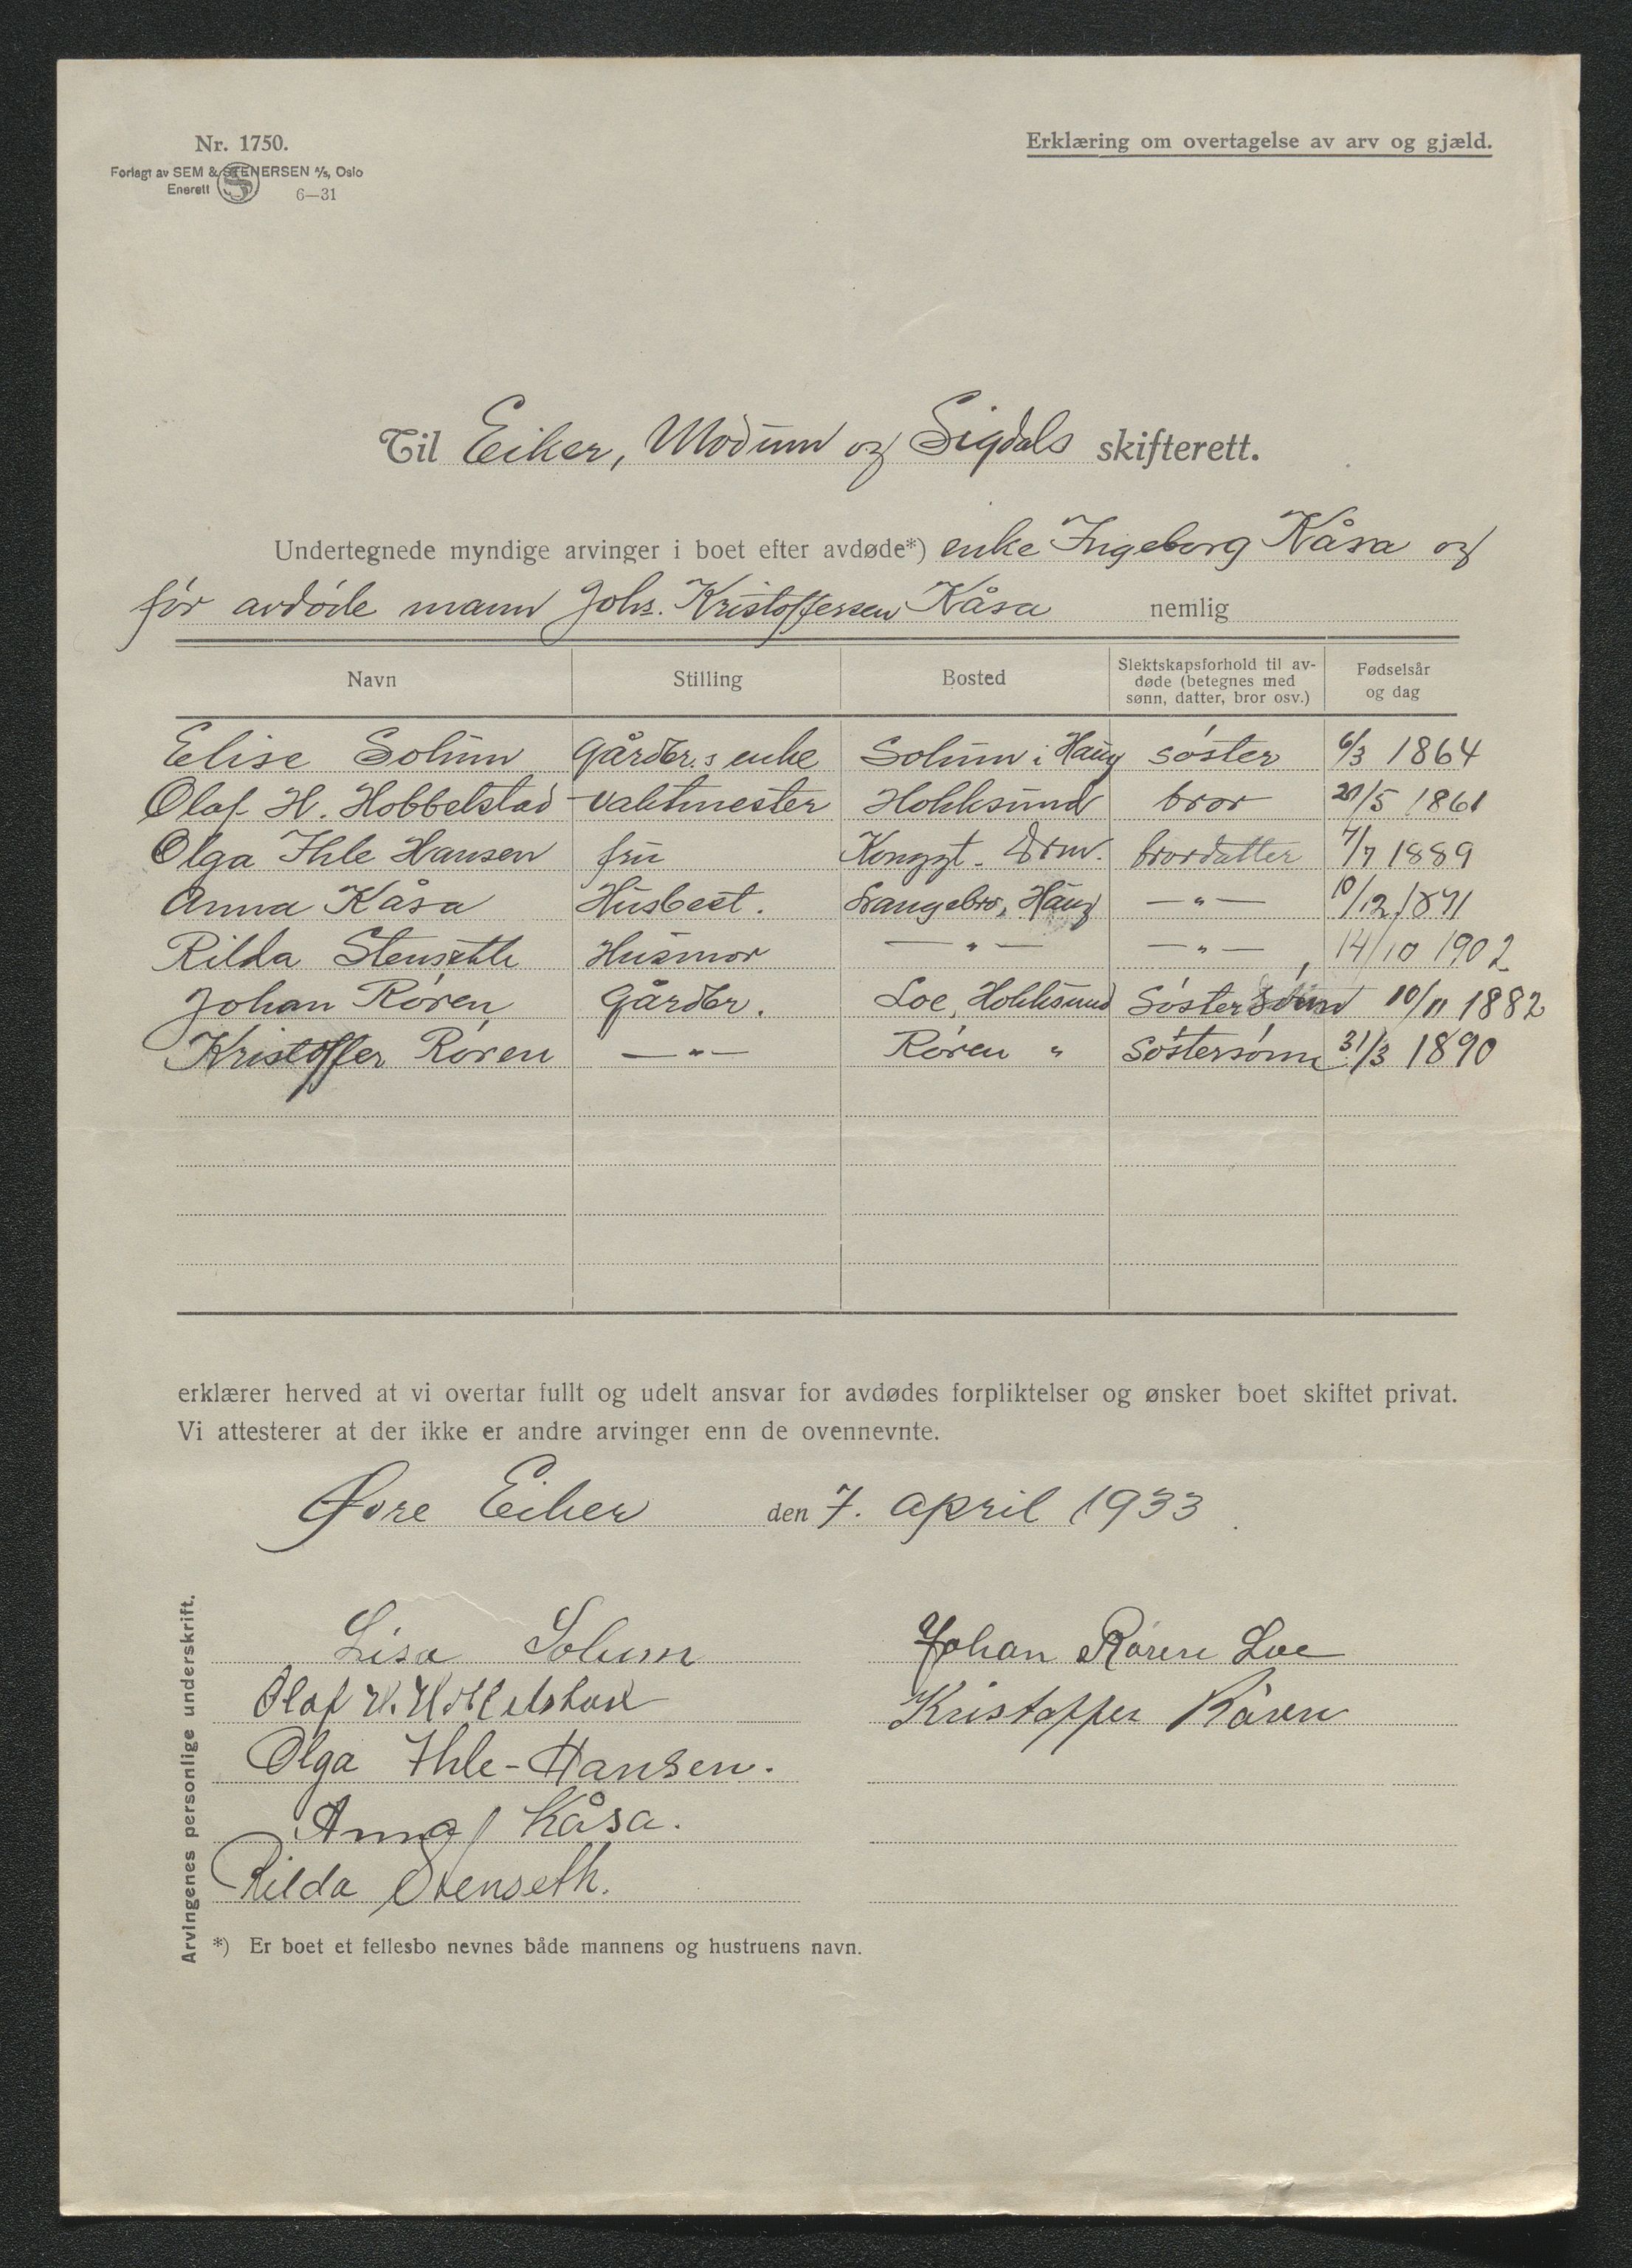 Nr. 1750.
Forlagt av SEM & STENERSEN A/S, Oslo
Enerett
6—31
Erklæring om overtagelse av arv og gjæld.
Til Eiker, Modum og Sigdals skifterett.
Undertegnede myndige arvinger i boet efter avdøde*) enke Ingeborg Kåsa og
før avdöde mann Johs. Kristoffersen Kåsa nemlig
Navn Stilling Bosted Slektskapsforhold til avdøde (betegnes med sønn, datter, bror osv.) Fødselsår og dag
Elise Solum Gårdbr.s enke Solum i Haug söster 6/3 1864
Olaf H. Hobbelstad vaktmester Hokksund bror 1861
Olga Ihle Hansen fru Konggt. Drm. brordatter 1889
Anna Kåsa Husbest. Langebro, Haug —„—
Rilda Stenseth Husmor —„— —„— 14/10 1902
Johan Rören Gårdbr. Loe, Hokksund Söstersönn 10/11 1882
Kristoffer Rören —„— Rören „ Söstersönn 31/3 1890
erklærer herved at vi overtar fullt og udelt ansvar for avdødes forpliktelser og ønsker boet skiftet privat.
Vi attesterer at der ikke er andre arvinger enn de ovennevnte.
Øvre Eiker den 7. april 1933
Arvingenes personlige underskrift.
Lisa Solum
Olaf H. Hobbelstad
Olga Ihle-Hansen.
Anna Kåsa.
Rilda Stenseth.
Johan Rören Loe
Kristoffer Rören
*) Er boet et fellesbo nevnes både mannens og hustruens navn.